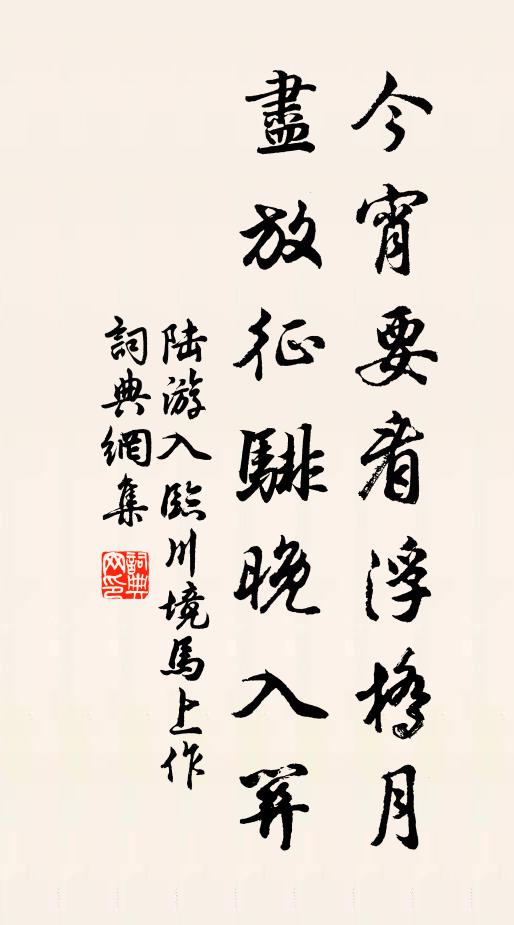 今宵要看浮橋月
盡放征騑晚入關
陸游入臨川境馬上作
詞典網集
詞典网印